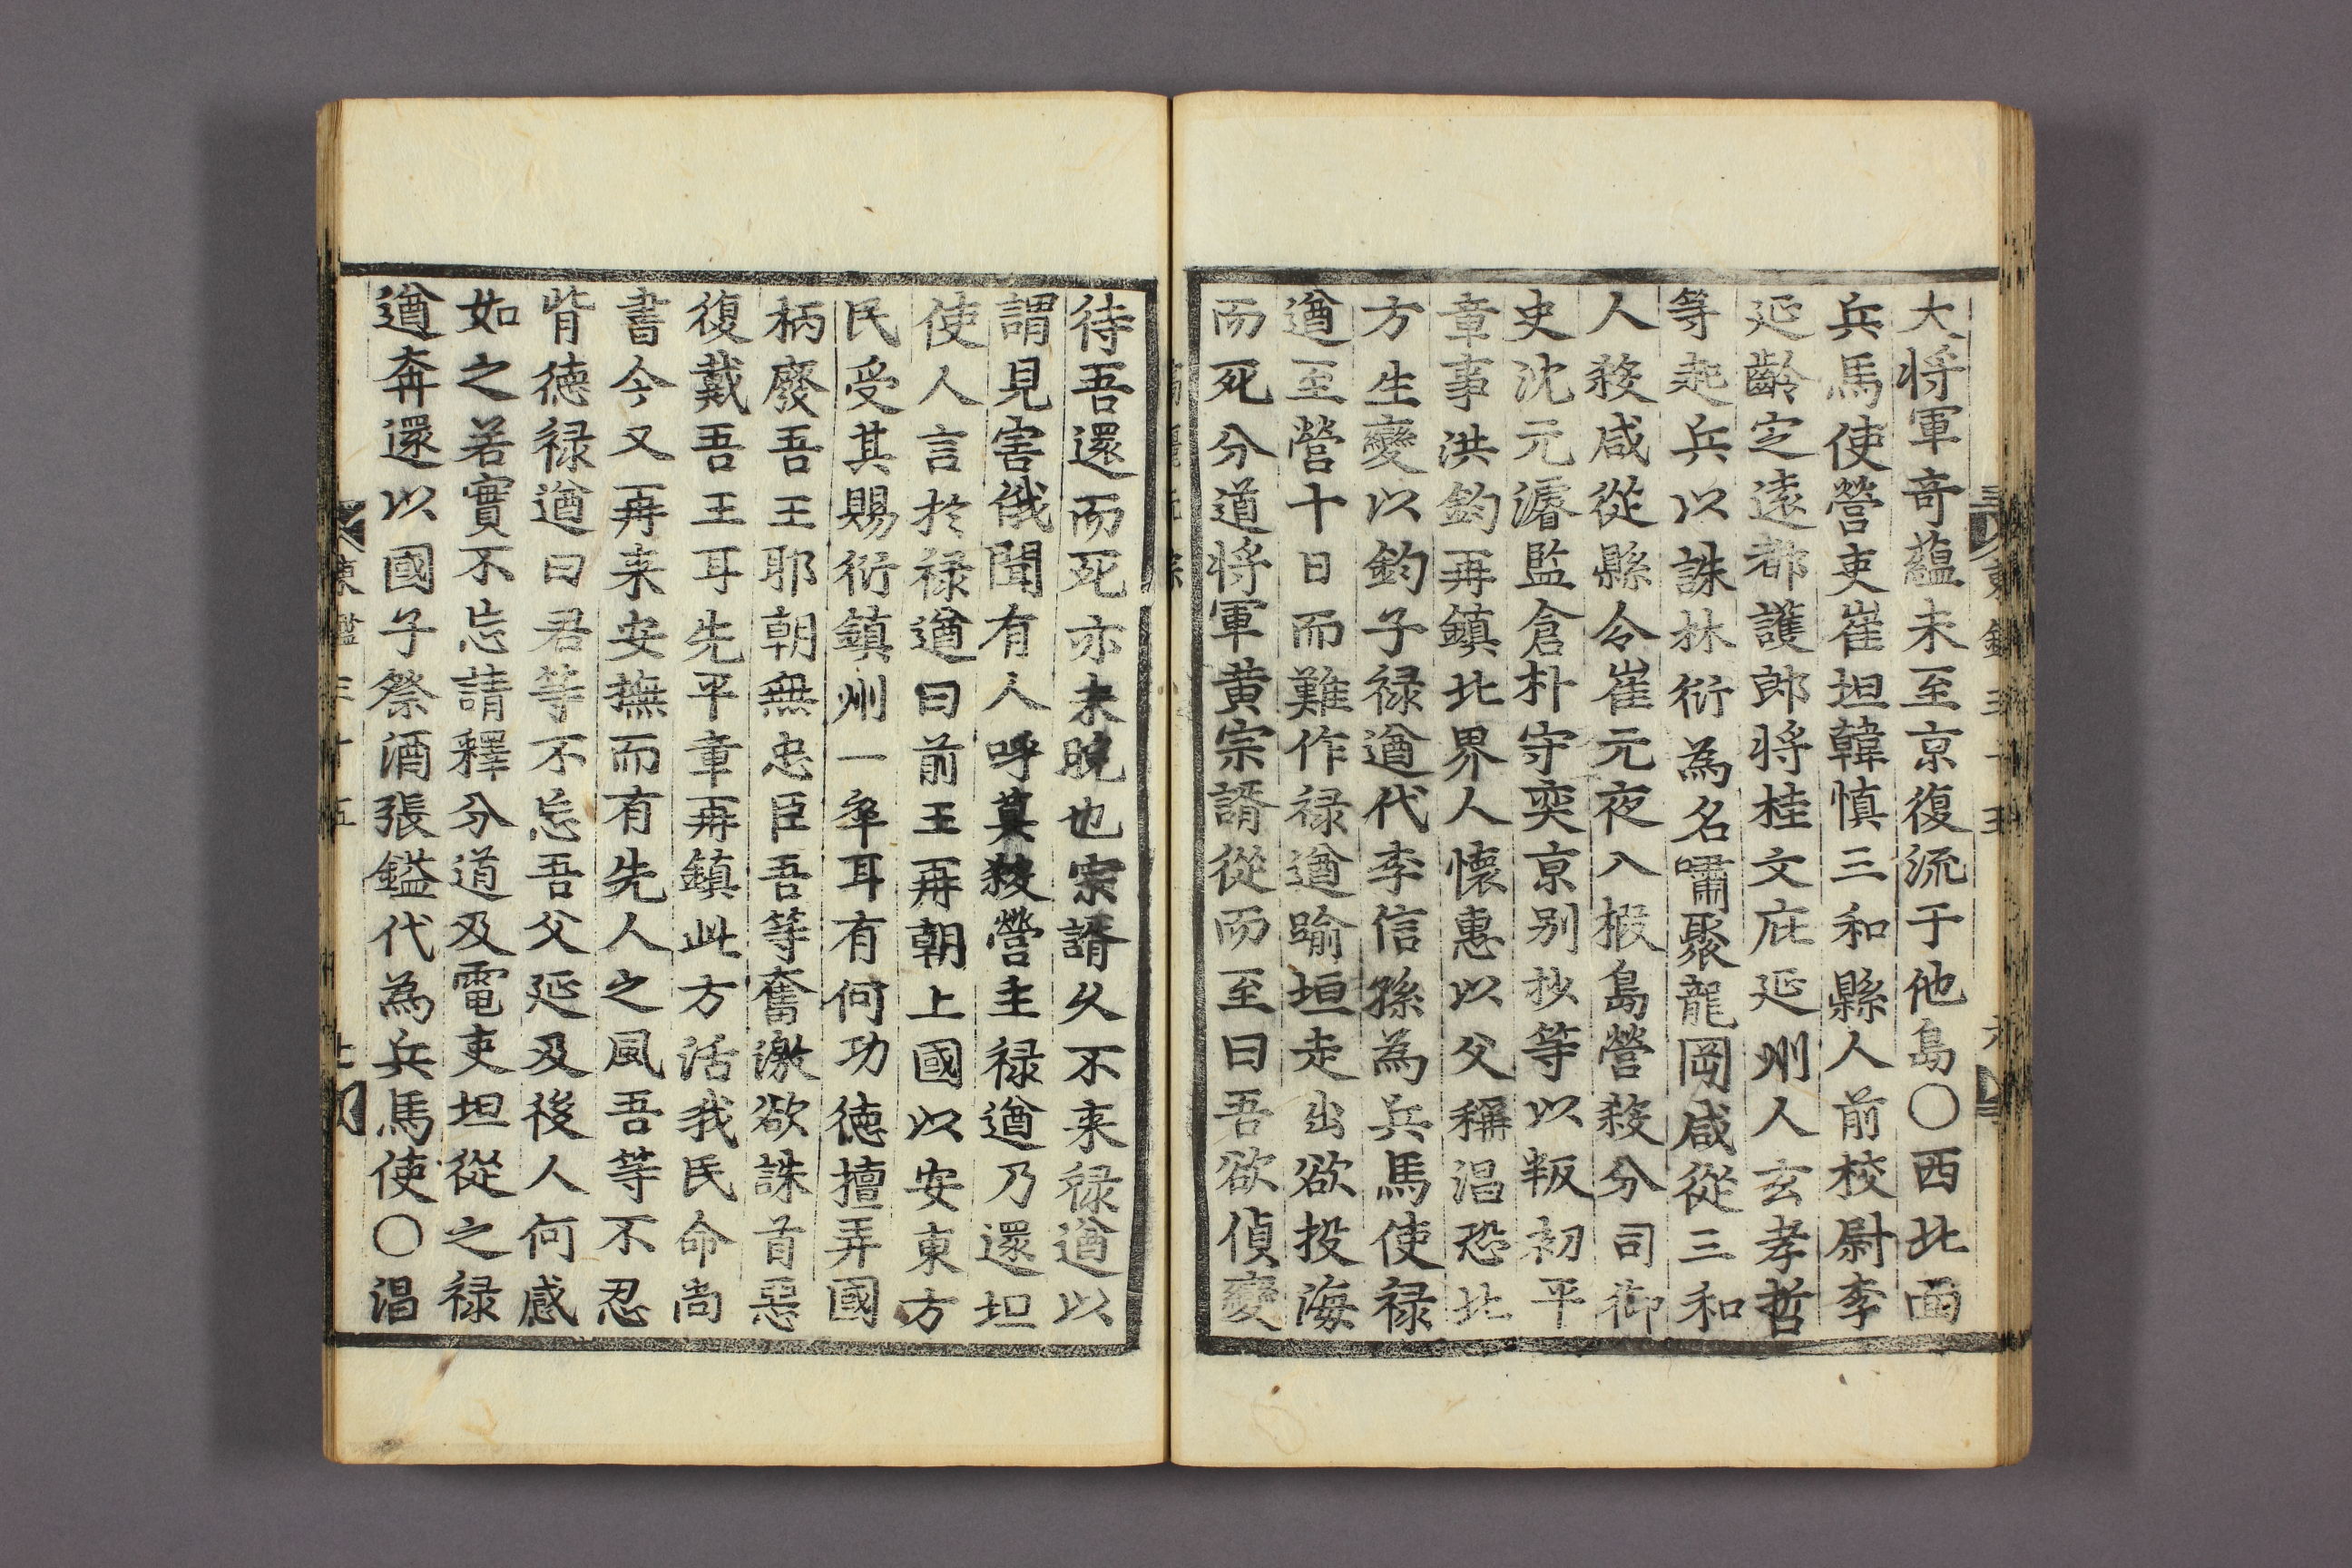 大将軍奇蘊未至京復流于他島〇西北面
兵馬使營吏崔坦韓慎三和縣人前校尉李
延齡定遠都護郎将桂文庇延州人玄孝哲
等起兵以誅林衍為名嘯聚龍岡咸從三和
人殺咸從縣令崔元夜入椵島營殺分司御
史沈元濬監倉朴守奕京别抄等以叛初平
章事洪鈞再鎮北界人懷惠以父稱淐恐北
方生變以鈞子禄遒代李信孫為兵馬使禄
遒至營十日而難作禄遒踰垣走出欲投海
而死分道将軍黄宗諝從而至曰吾欲偵變
待吾還而死亦未晚也宗諝久不来禄遒以
謂見害俄聞有人呼莫殺營主禄遒乃還坦
使人言於禄遒曰前王再朝上國以安東方
民受其賜衍鎮州一卒耳有何功德擅弄國
柄廢吾王耶朝無忠臣吾等奮激欲誅首惡
復戴吾王耳先平章再鎮此方活我民命尚
書今又再来安撫而有先人之風吾等不忍
背徳禄遒曰君等不忘吾父延及後人何感
如之若實不忘請釋分道及電吏坦從之禄
遒奔還以國子祭酒張鎰代為兵馬使〇淐